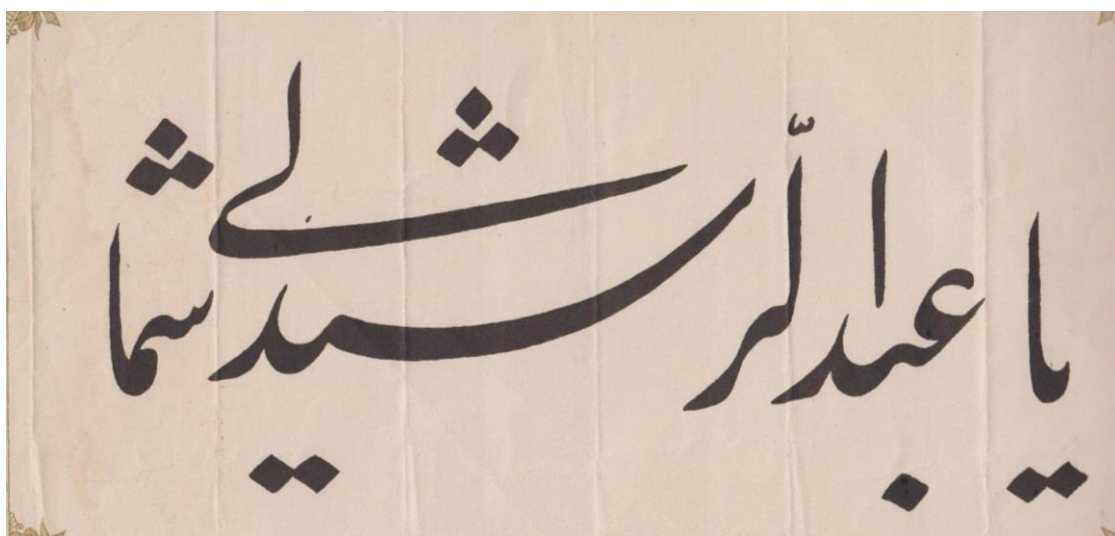 یا عبد الرّشید شمالے